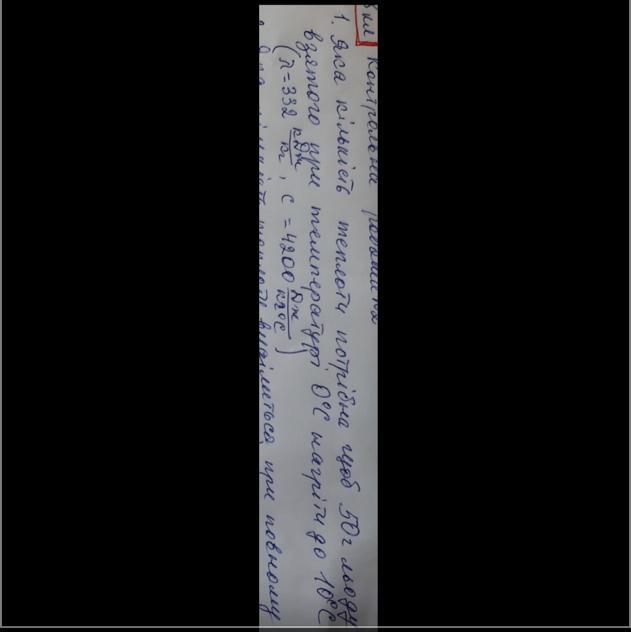 8 кл Контрольна робота
1. Яка кількість теплоти потрібна щоб 50г льоду
взятого при температурі 0°С нагріти до 10°С
(λ=332 кДж/кг, с =4200 Дж/кг°С)
кількість теплоти виділиться при повному